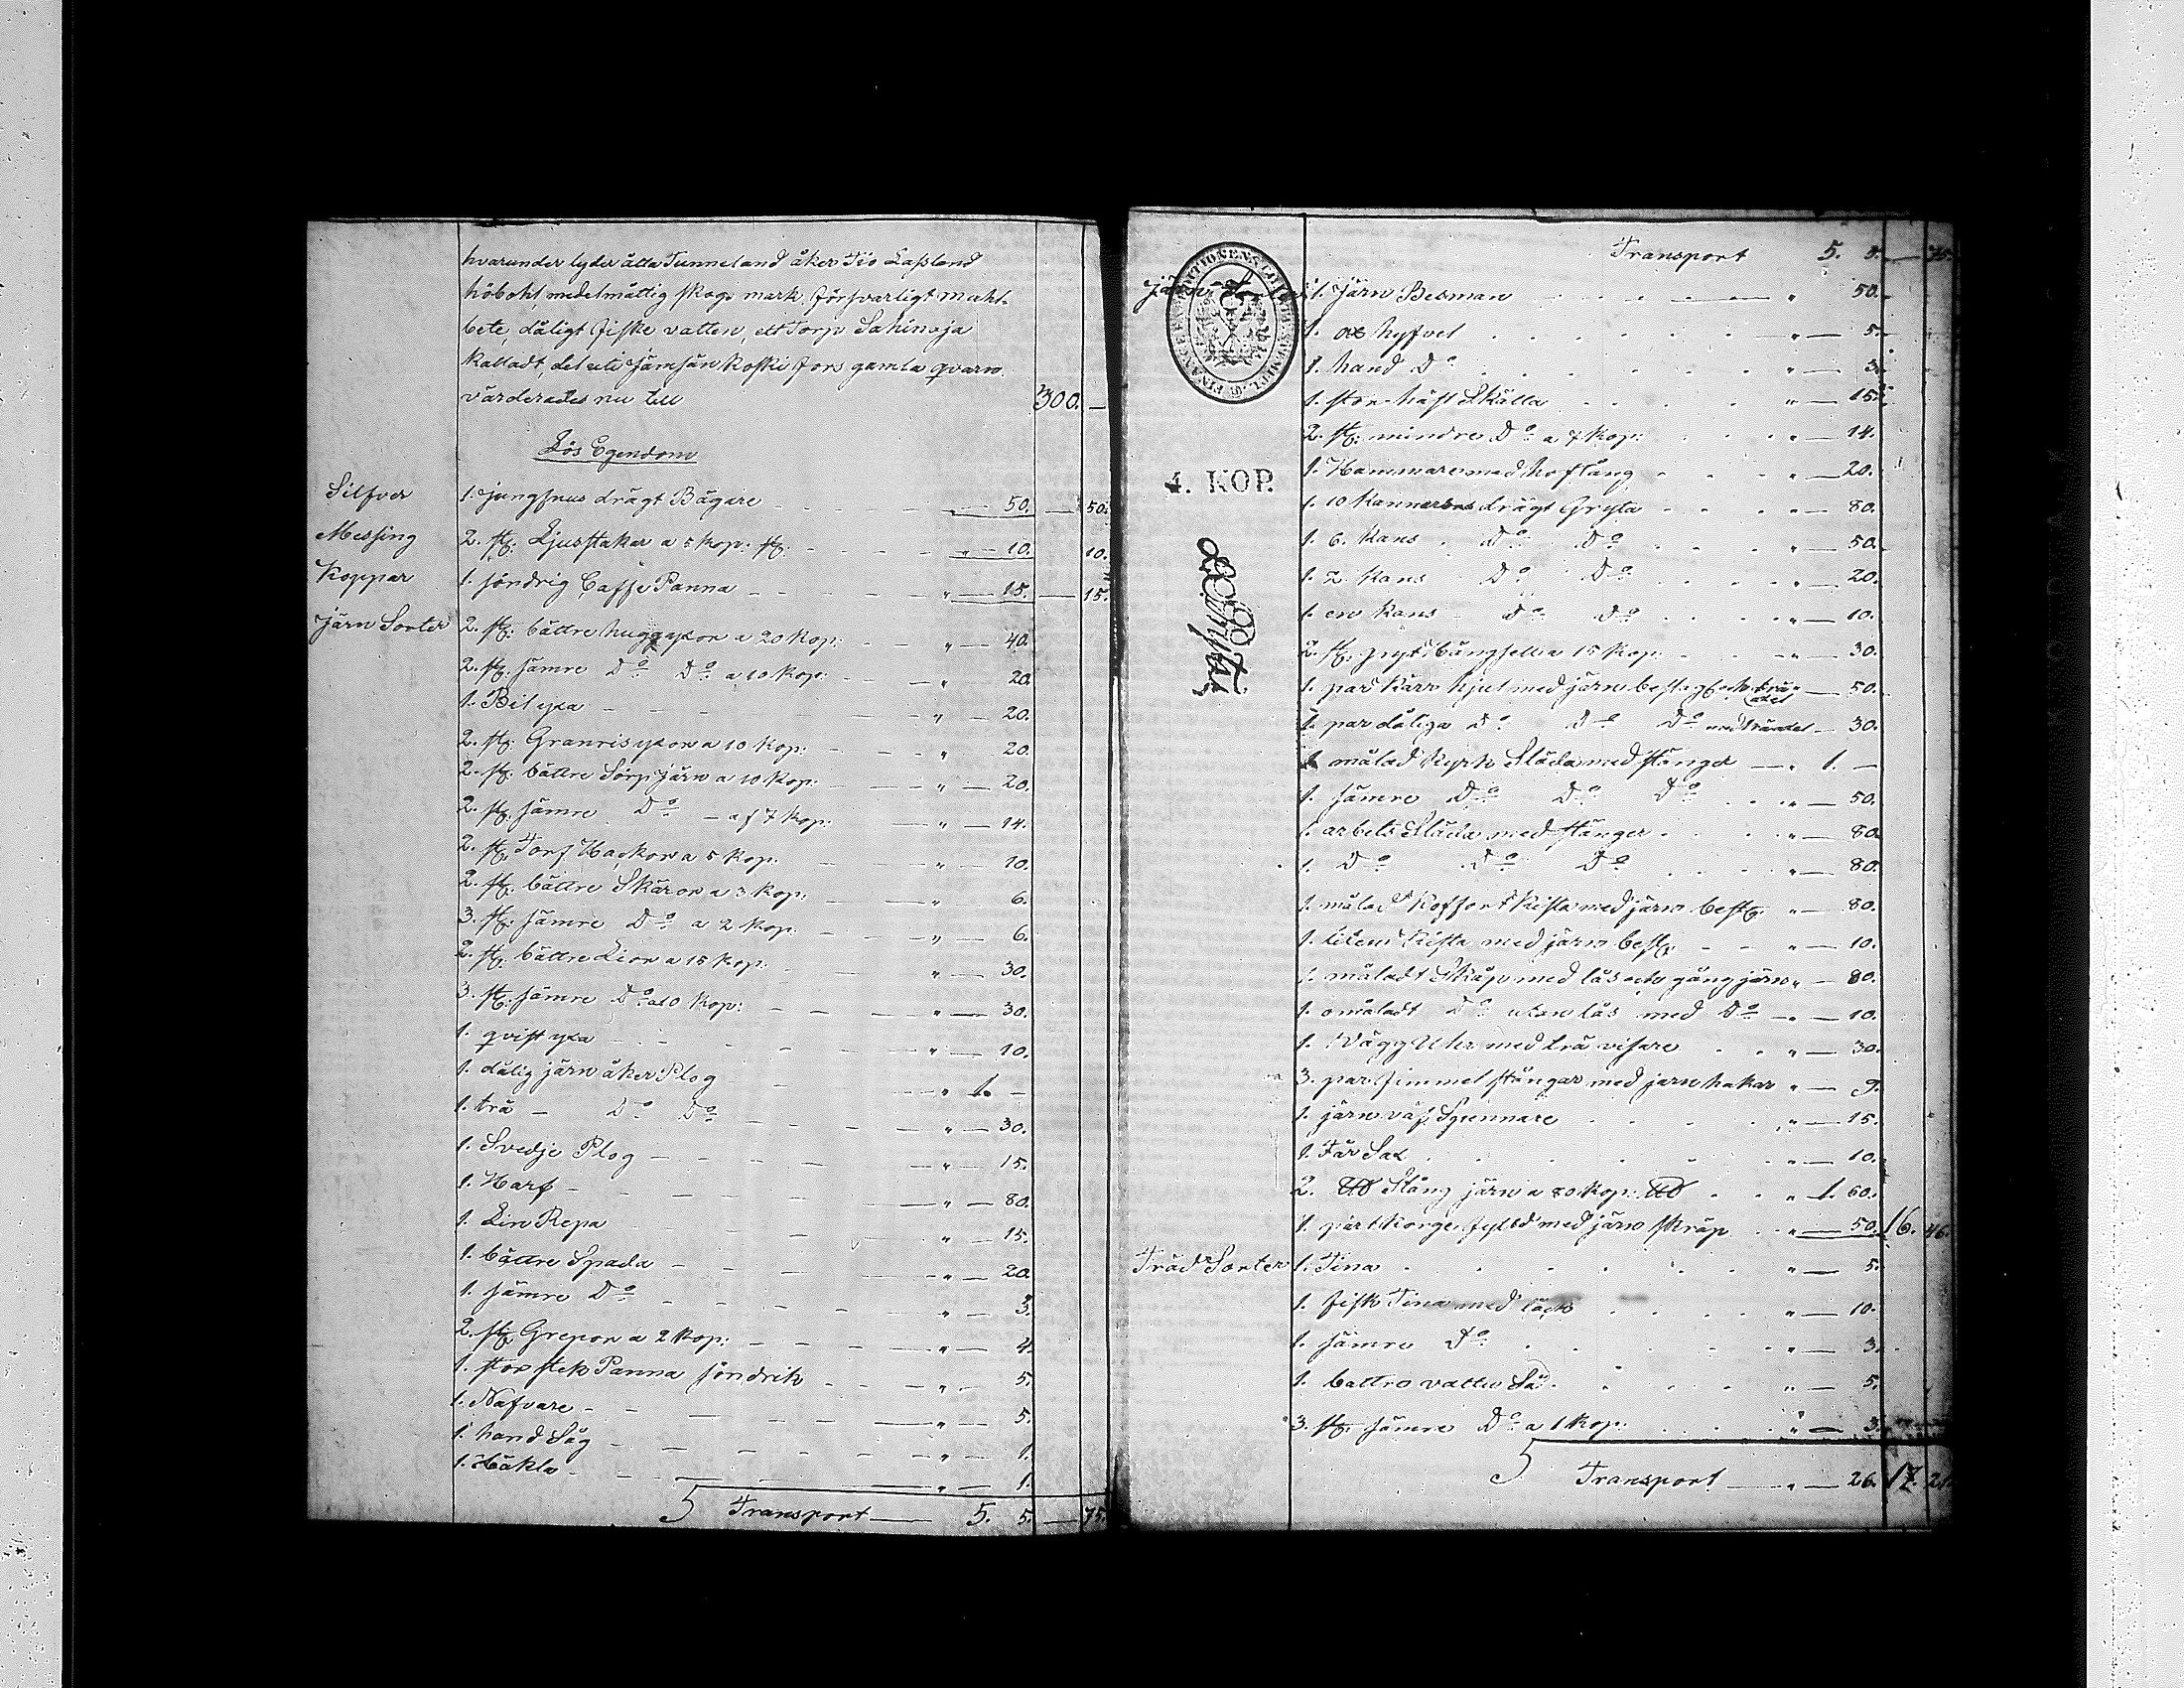 hvarunder lyder åtta Tunneland åker Tio Lassland
höbohl medelmåttig skogs mark, försvarligt muhl-
bete, dåligt fiske vatten, ett Torp Sahinoja
kalladt, del uti Jämsän koski fors gamla qvarn
värderades nu till 300. —
Lös Egendom
Silfver 1. jungfrus drägt Bägare 50. — 50.
Messing 2. st: Ljusstakar a 5 kop: st: " — 10. 10.
Koppar 1. söndrig Caffe Panna " — 15. — 15.
Järn Sorter 2. st: bättre huggyxor a 20 kop: " — 40.
2. st: sämre Do Do a 10 kop: " 20.
1. Bil yxa " — 20.
2. st: Granris yxor a 10 kop: " 20.
2. st: bättre Sörp järn a 10 kop: " — 20.
2. st: sämre Do — af 7 kop: " — 14.
2. st: Torf Hackor a 5 kop: " 10.
2. st: bättre Skäror a 3 kop: " 6.
3. st: sämre Do a 2 kop: " — 6.
2. st: bättre Lior a 15 kop: " — 30.
3. st: sämre Do a 10 kop: " — 30.
1. qvist yxa " — 10.
1. dålig järn åker Plog " 1. —
1. trä — Do Do " — 30.
1. Svedje Plog " — 15.
1. Harf " — 80.
1. Lin Repa " — 15.
1. bättre Spada " — 20.
1. sämre Do " — 3.
2. st: Grepor a 2 kop: " — 4.
1. stor stek Panna söndrik " — 5.
1. Nafvare " — 5.
1. hand Såg " — 1.
1. Häkla " — 1.
Transport — 5. 5. — 75.
Transport 5. 5. — 75.
Järn 1. Järn Besman " — 50.
1. ox hyfvel " — 5.
1. hand Do " — 3.
1. stor häst Skälla " — 15.
2. st: mindre Do a 7 kop: " — 14.
1. Hammare med hoftång " — 20.
1. 10 kannors drägt Gryta " — 80.
1. 6. kans Do Do " — 50.
1. 2. kans Do Do " — 20.
1. en kans Do Do " — 10.
2. st: a 15 kop: " — 30.
1. par Kärr hjul med järn beslag och trä axel — 50.
1. par dåliga Do Do Do med träaxel — 30.
1. målad Kyrk Släda med stänger — " 1. —
1. sämre Do Do Do " — 50.
1. arbets Släda med stänger " — 80.
1. Do Do Do " — 80.
1. målad Koffort Kista med järn besl: " — 80.
1. liten Kista med järn besl: " — 10.
1. måladt Skåp med lås och gångjärn " — 80.
1. omåladt Do utan lås med Do — " — 10.
1. Vägg Uhr med trä visare " — 30.
3. par Jimmel stängar med jern hakar " — 9.
1. järn väf Spennare " — 15.
1. Får Sax " — 10.
2. LU Stång järn a 80 kop: LU " 1. 60.
1. pärt korge fylld med järn skräp " — 50. 16. 46.
Träd Sorter 1. Tina " — 5.
1. fisk Tina med läck " — 10.
1. sämre Do " — 3.
1. bättre vatten Så " — 5.
3. st: sämre Do a 1 kop: " — 3.
Transport — " — 26. 17. 21.
FINANCE EXPEDITIONENS
4. KOP.